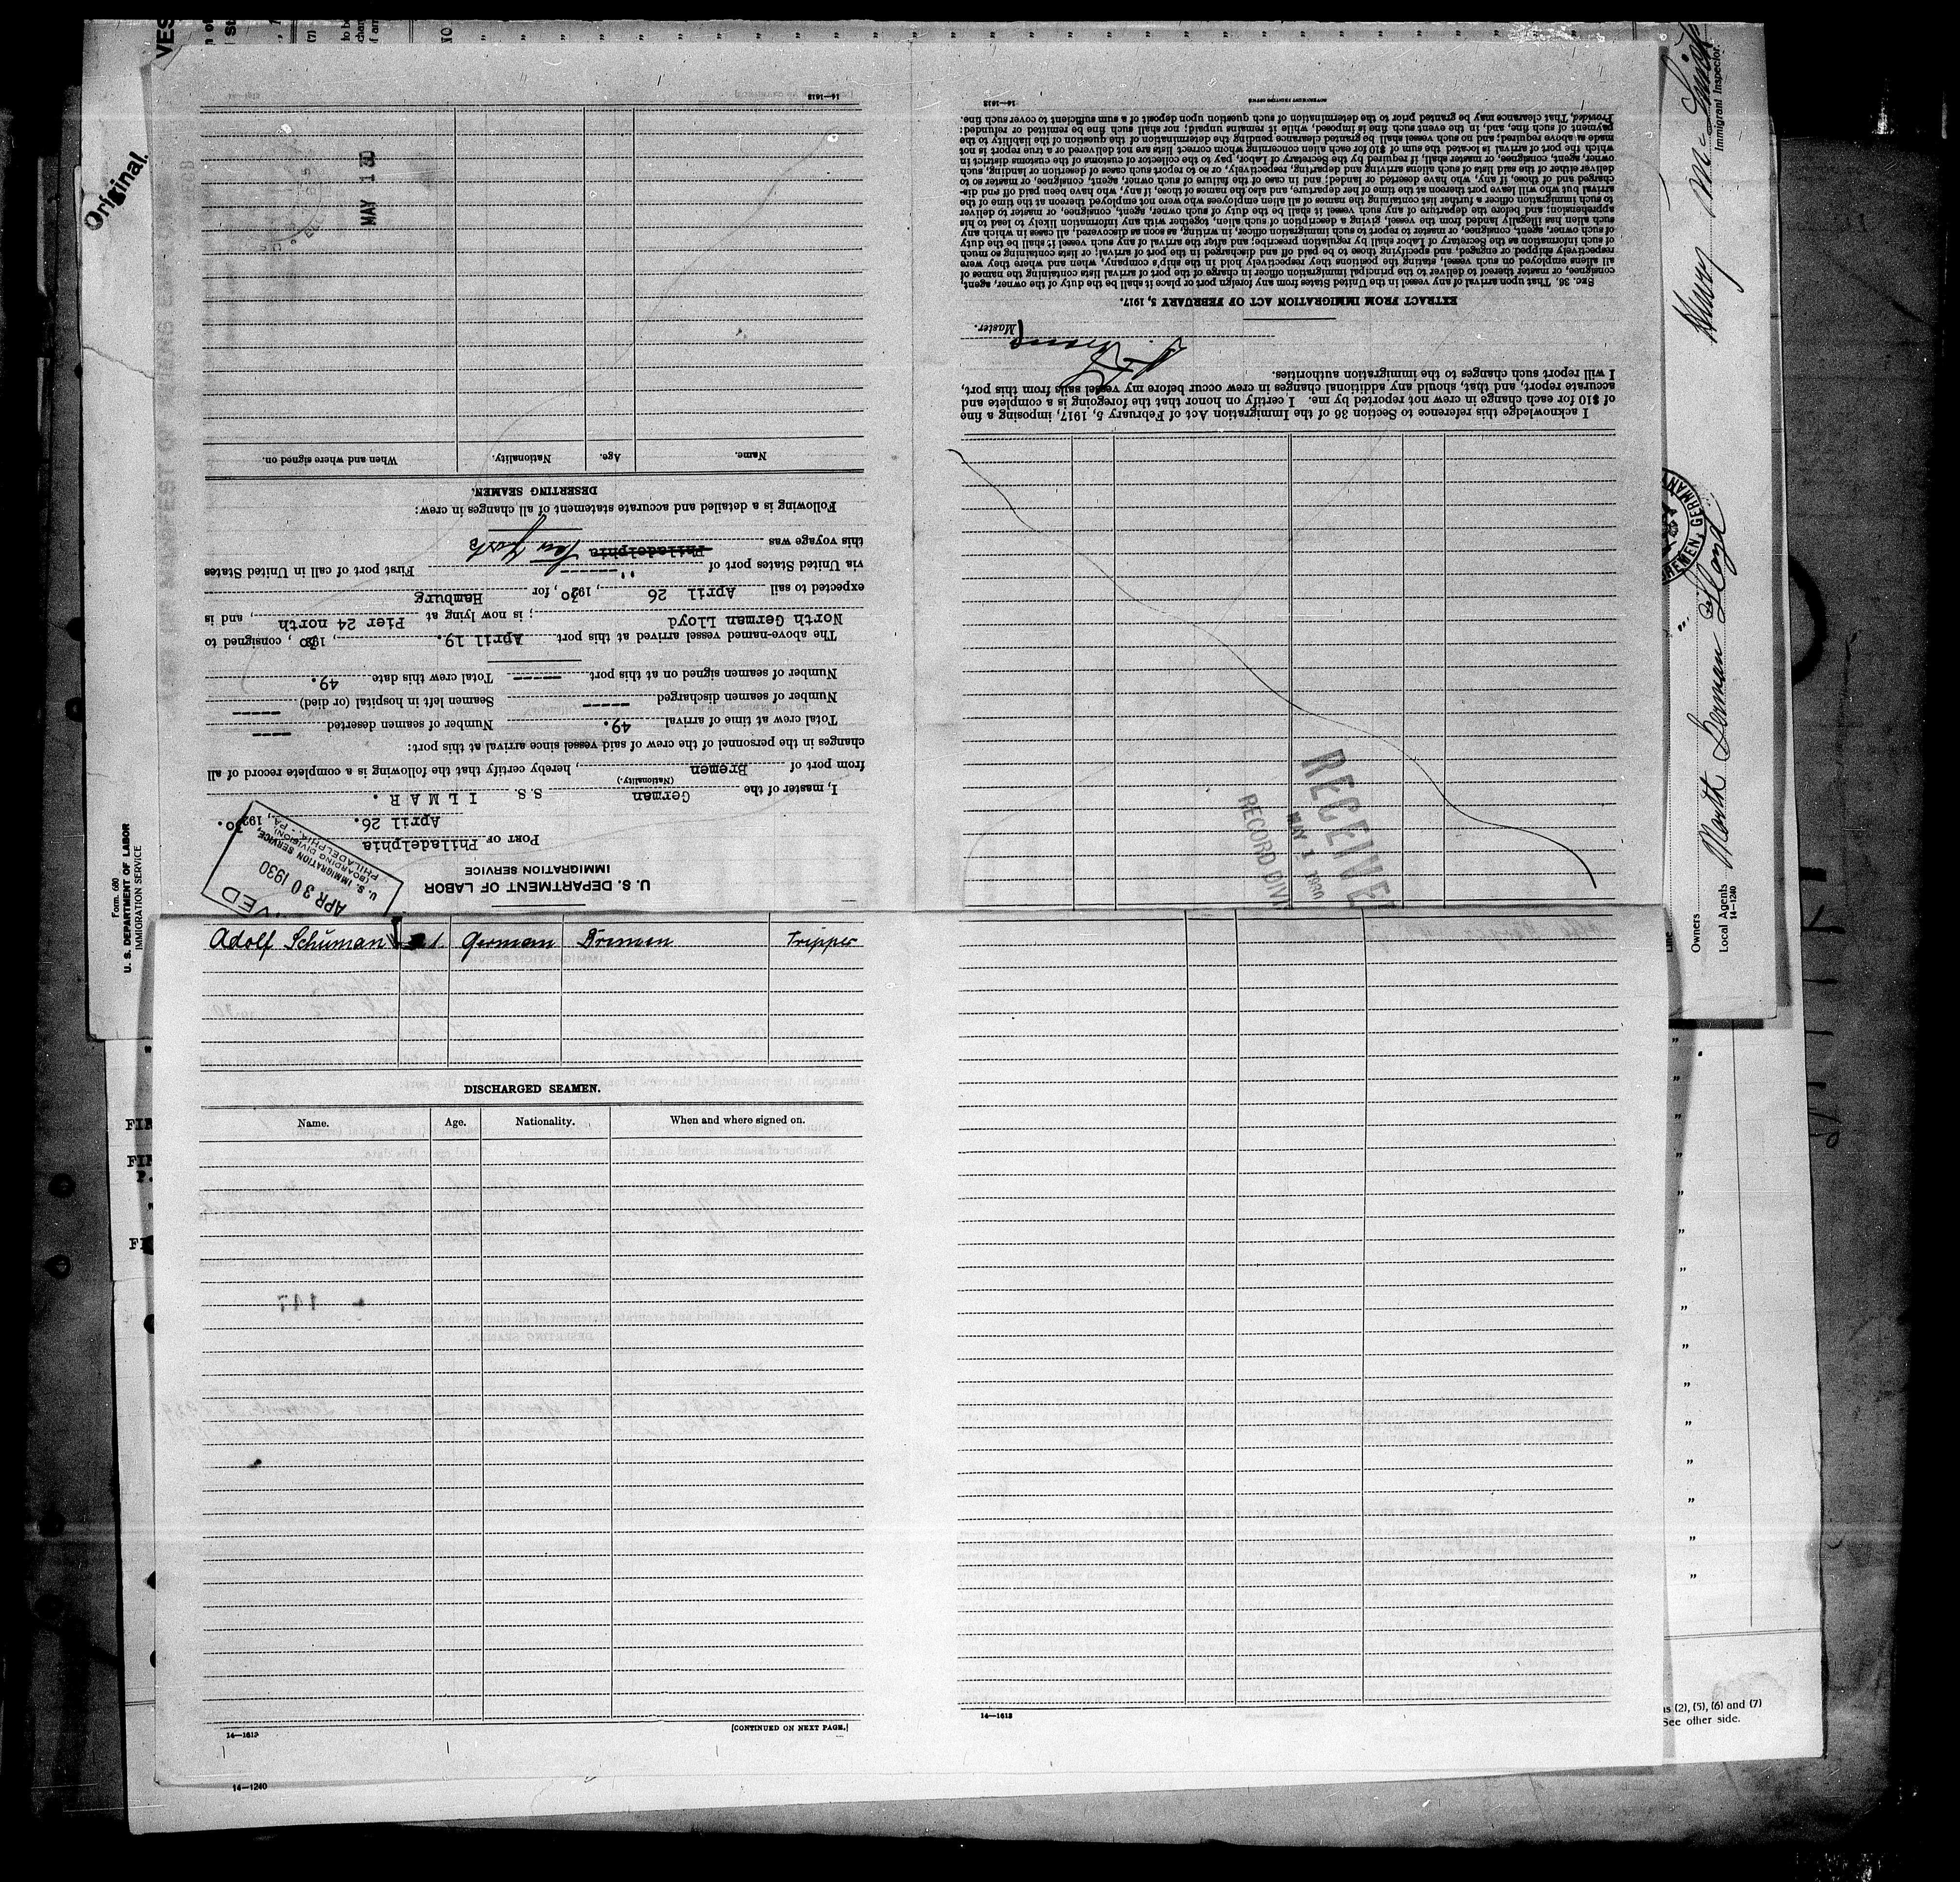 Original.
Form 680
U. S. DEPARTMENT OF LABOR
IMMIGRATION SERVICE
U. S. DEPARTMENT OF LABOR
IMMIGRATION SERVICE
APR 30 1930
U. S. IMMIGRATION SERVICE,
(BOARDING DIVISION)
PHILADELPHIA, PA.
PORT OF Philadelphia
April 26. , 1930.
I, master of the German S. S. ILMAR.
(Nationality.)
from port of Bremen , hereby certify that the following is a complete record of all
changes in the personnel of the crew of said vessel since arrival at this port:
Total crew at time of arrival 49. Number of seamen deserted -----
Number of seamen discharged ----- Seamen left in hospital (or died) -----
Number of seamen signed on at this port ----- Total crew this date 49.
The above-named vessel arrived at this port April 19. , 1930 , consigned to
North German Lloyd ; is now lying at Pier 24 north , and is
expected to sail April 26 , 1930 , for Hamburg
via United States port of -------- First port of call in United States
this voyage was Philadelphia New York
Following is a detailed and accurate statement of all changes in crew:
DESERTING SEAMEN.
Name. Age. Nationality. When and where signed on.
MAY 1 30
14—1613
RECEIVE
MAY 1 1930
RECORD DIVI
I acknowledge this reference to Section 36 of the Immigration Act of February 5, 1917, imposing a fine
of $10 for each change in crew not reported by me. I certify on honor that the foregoing is a complete and
accurate report, and that, should any additional changes in crew occur before my vessel sails from this port,
I will report such changes to the immigration authorities.
Master.
EXTRACT FROM IMMIGRATION ACT OF FEBRUARY 5, 1917.
SEC. 36. That upon arrival of any vessel in the United States from any foreign port or place it shall be the duty of the owner, agent,
consignee, or master thereof to deliver to the principal immigration officer in charge of the port of arrival lists containing the names of
all aliens employed on such vessel, stating the positions they respectively hold in the ship's company, when and where they were
respectively shipped or engaged, and specifying those to be paid off and discharged in the port of arrival; or lists containing so much
of such information as the Secretary of Labor shall by regulation prescribe; and after the arrival of any such vessel it shall be the duty
of such owner, agent, consignee, or master to report to such immigration officer, in writing, as soon as discovered, all cases in which any
such alien has illegally landed from the vessel, giving a description of such alien, together with any information likely to lead to his
apprehension; and before the departure of any such vessel it shall be the duty of such owner, agent, consignee, or master to deliver
to such immigration officer a further list containing the names of all alien employees who were not employed thereon at the time of the
arrival but who will leave port thereon at the time of her departure, and also the names of those, if any, who have been paid off and dis-
charged and of those, if any, who have deserted or landed; and in case of the failure of such owner, agent, consignee, or master so to
deliver either of the said lists of such aliens arriving and departing, respectively, or so to report such cases of desertion or landing, such
owner, agent, consignee, or master shall, if required by the Secretary of Labor, pay to the collector of customs of the customs district in
which the port of arrival is located the sum of $10 for each alien concerning whom correct lists are not delivered or a true report is not
made as above required; and no such vessel shall be granted clearance pending the determination of the question of the liability to the
payment of such fine, and, in the event such fine is imposed, while it remains unpaid; nor shall such fine be remitted or refunded:
Provided, That clearance may be granted prior to the determination of such question upon deposit of a sum sufficient to cover such fine.
14—1613
GOVERNMENT PRINTING OFFICE
Immigrant Inspector.
BREMEN, GERMAN
Owners
Local Agents North German Lloyd
14—1240
Adolf Schuman German Bremen Tripper
DISCHARGED SEAMEN.
Name. Age. Nationality. When and where signed on.
14—1613
[CONTINUED ON NEXT PAGE.]
14—1613
14—1240
(2), (5), (6) and (7)
See other side.